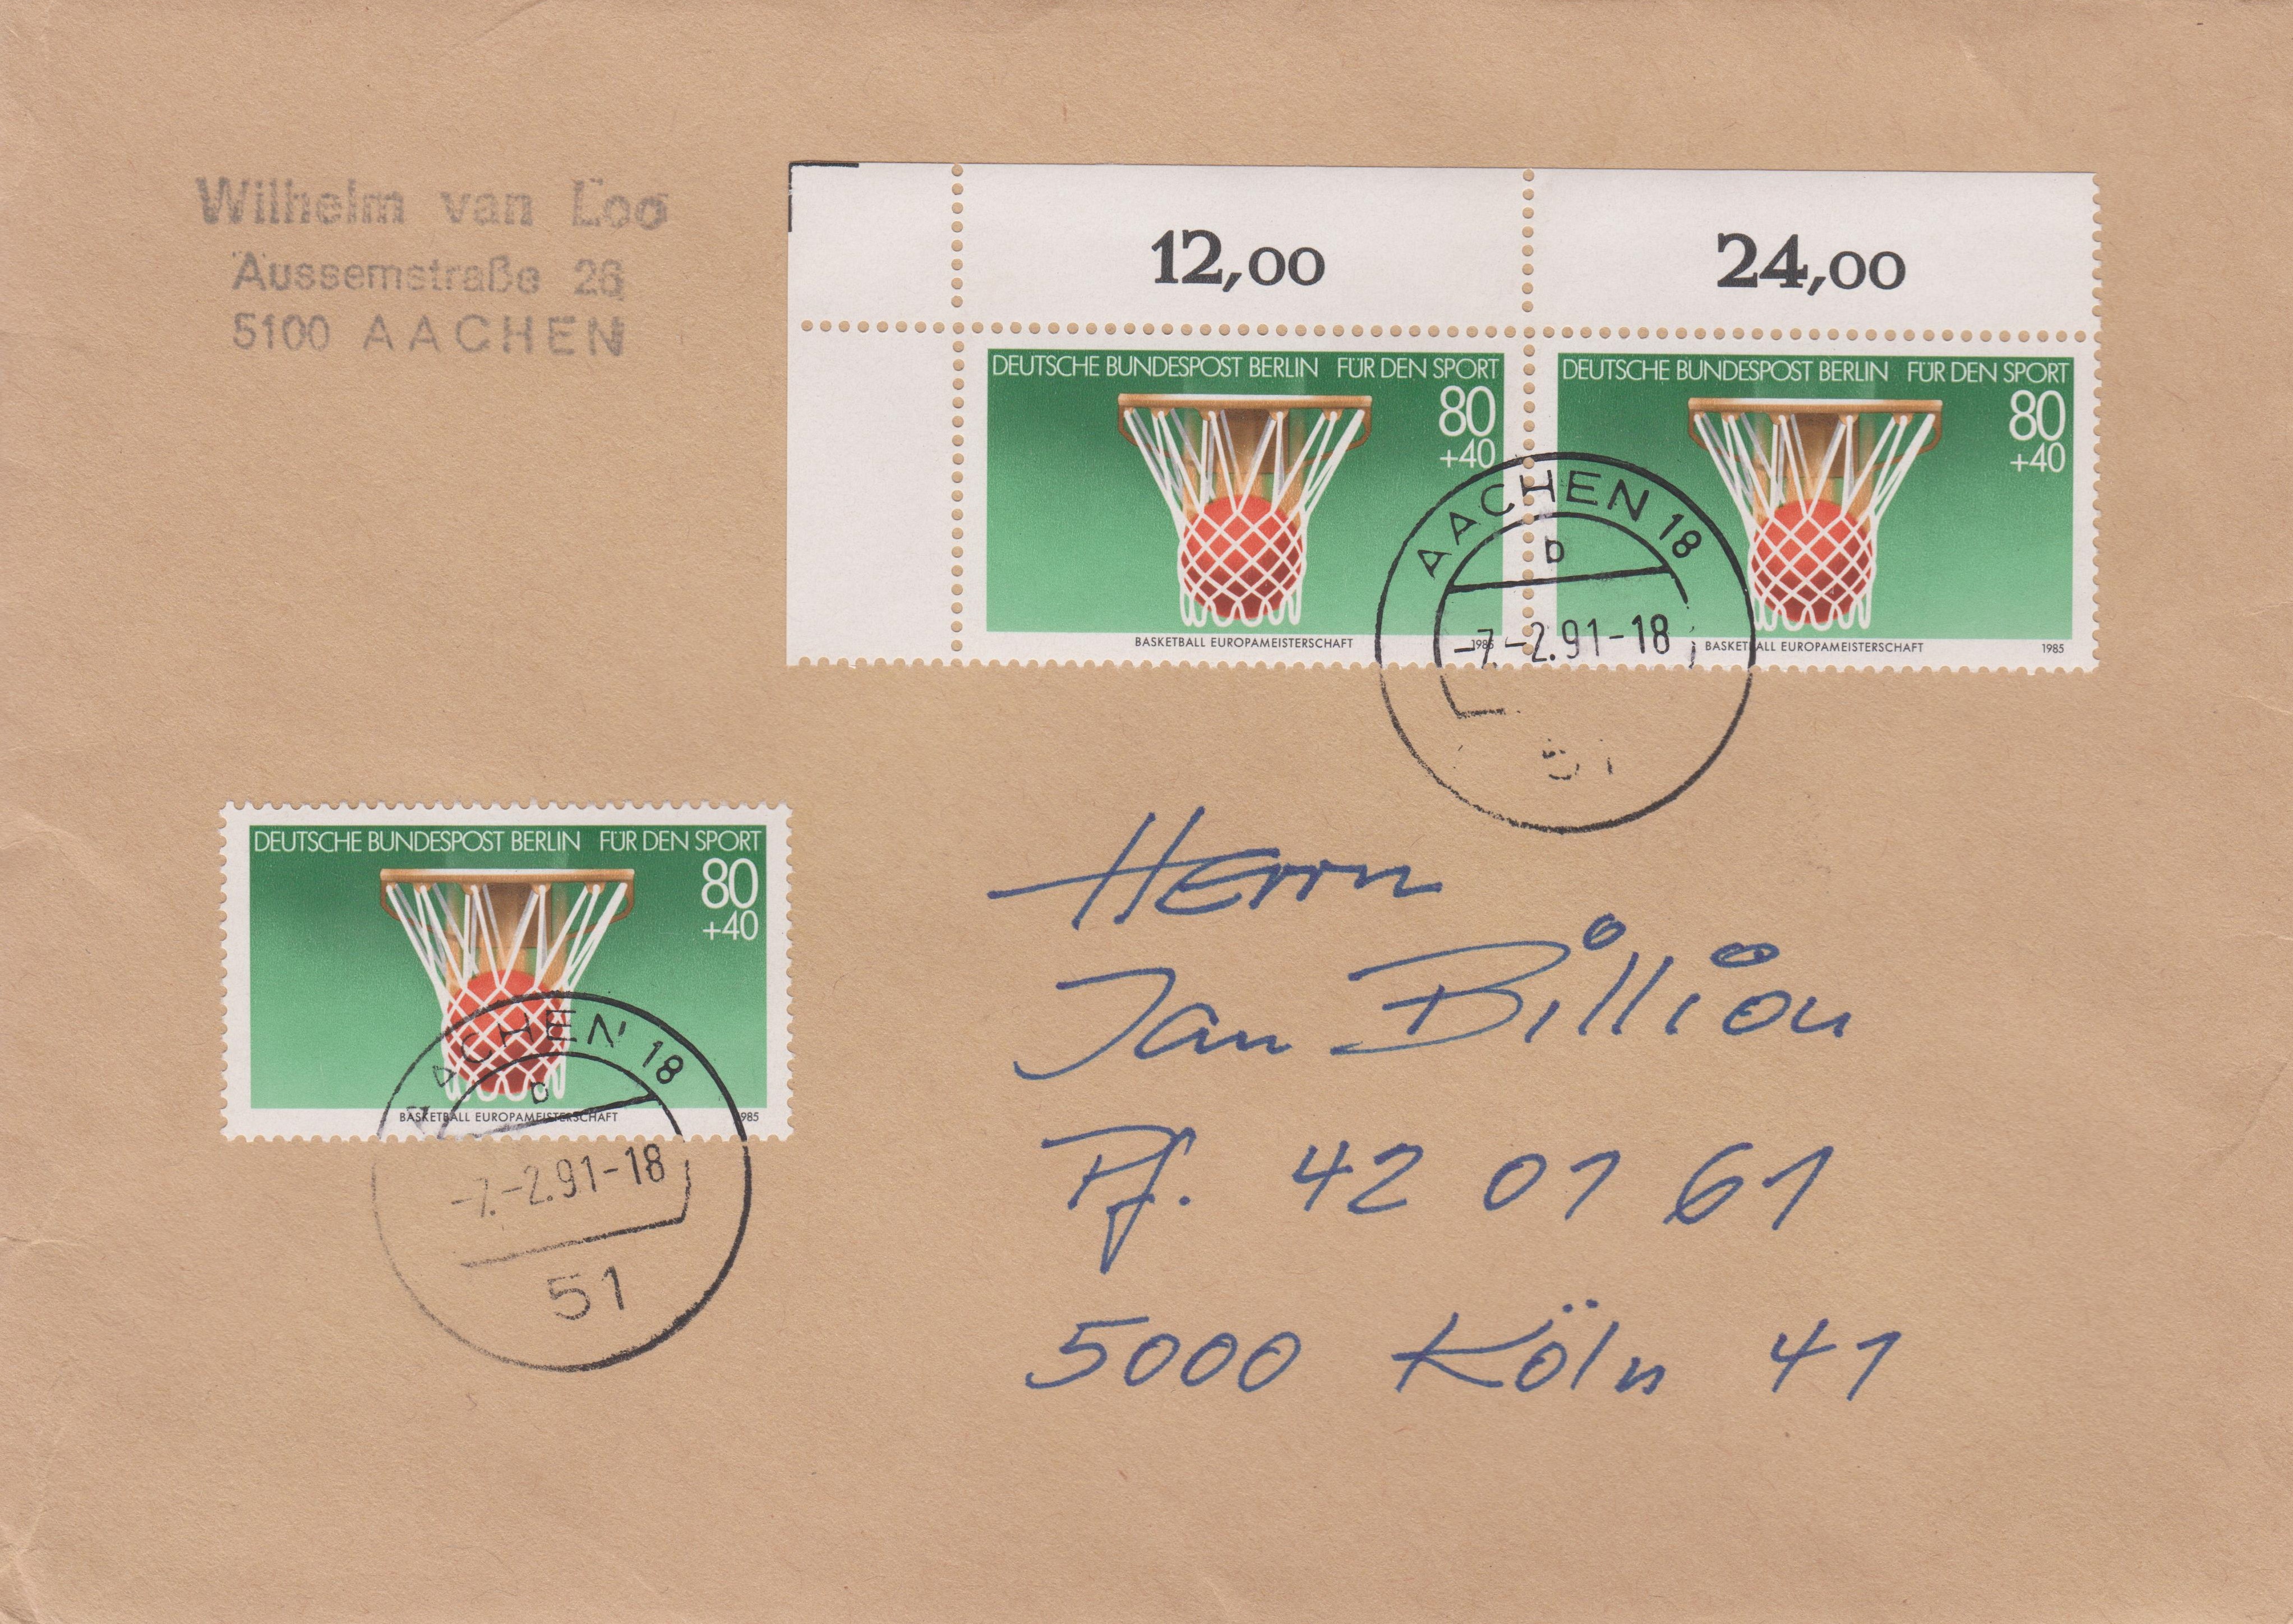 Wilhelm van Loo
Aussemstraße 26
5100 AACHEN
12,00
24,00
DEUTSCHE BUNDESPOST BERLIN FÜR DEN SPORT
80
+40
BASKETBALL EUROPAMEISTERSCHAFT 1985
DEUTSCHE BUNDESPOST BERLIN FÜR DEN SPORT
80
+40
BASKETBALL EUROPAMEISTERSCHAFT 1985
AACHEN 18
b
-7.-2.91-18
51
DEUTSCHE BUNDESPOST BERLIN FÜR DEN SPORT
80
+40
BASKETBALL EUROPAMEISTERSCHAFT 1985
AACHEN 18
b
-7.-2.91-18
51
Herrn
Jan Billion
Pf. 42 01 61
5000 Köln 41